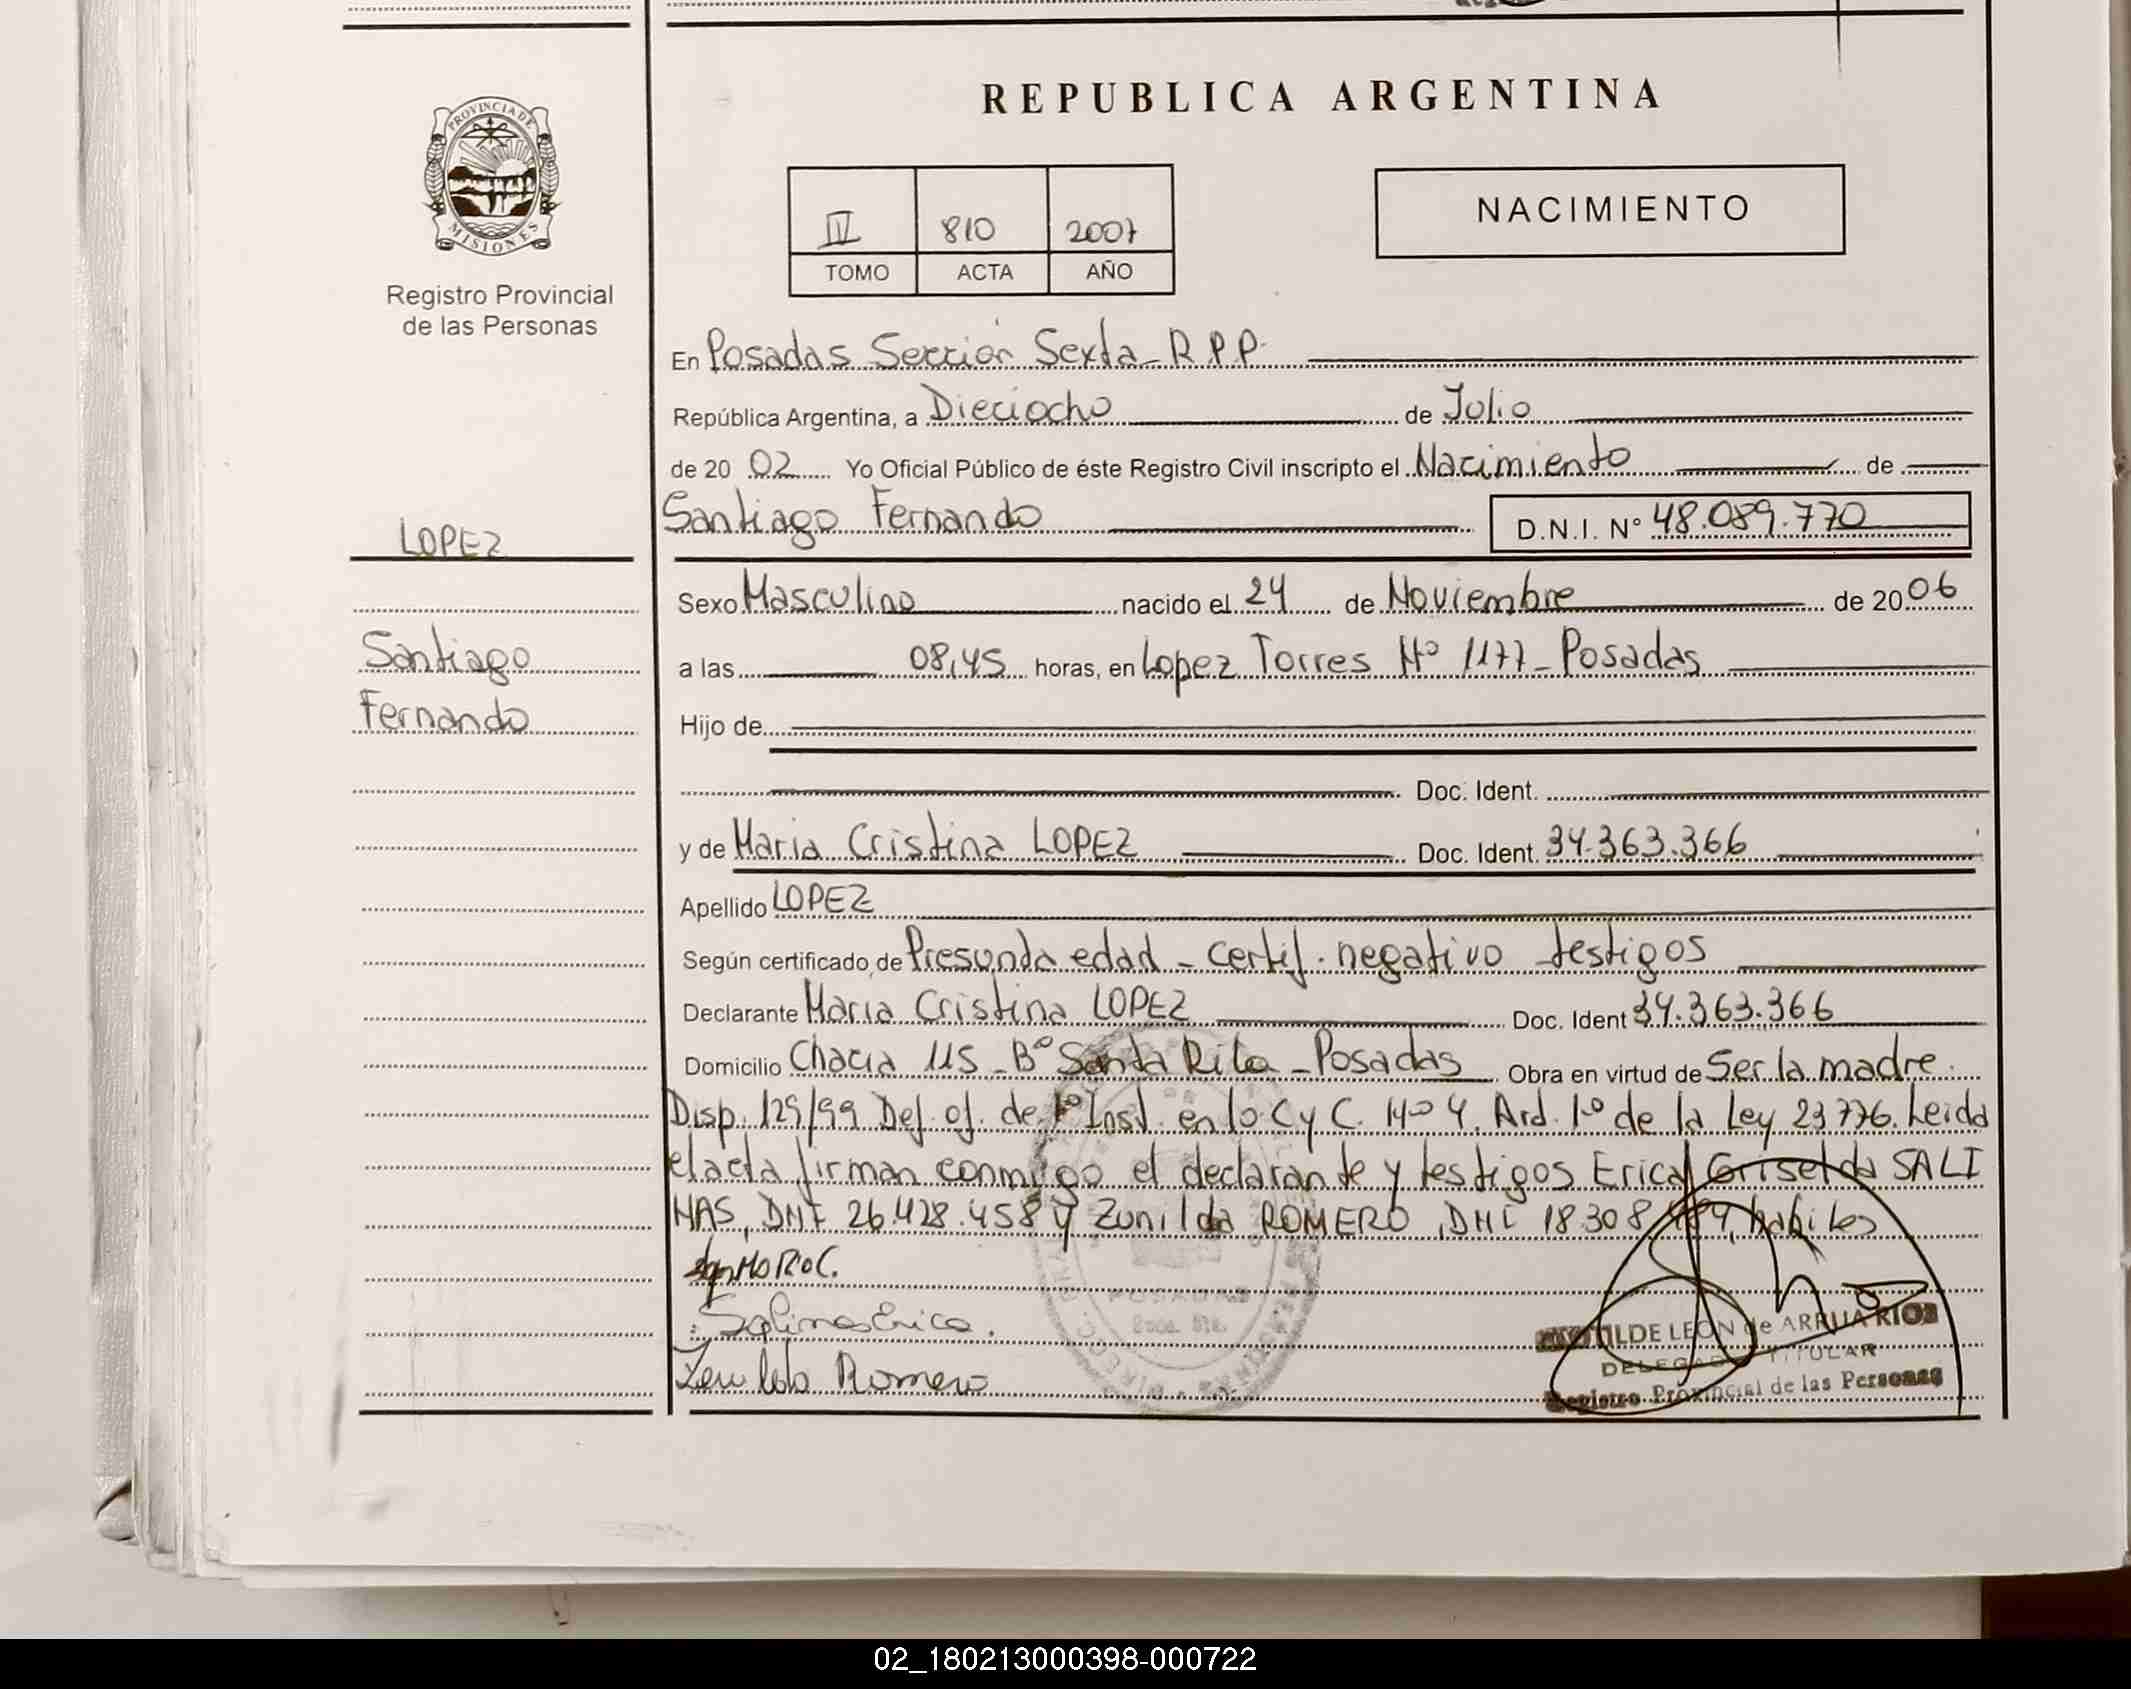 REPUBLICA ARGENTINA
PROVINCIA DE
MISIONES
Registro Provincial
de las Personas
IV 810 2007
TOMO ACTA AÑO
NACIMIENTO
En Posadas Sección Sexta - R.P.P.
República Argentina, a Dieciocho de Julio
de 20 02 Yo Oficial Público de éste Registro Civil inscripto el Nacimiento de
Santiago Fernando D.N.I. N° 48.089.770
LOPEZ
Sexo Masculino nacido el 24 de Noviembre de 20 06
Santiago
a las 08,45 horas, en Lopez Torres Nº 1177 - Posadas
Fernando
Hijo de
Doc. Ident.
y de Maria Cristina LOPEZ Doc. Ident. 34.363.366
Apellido LOPEZ
Según certificado de Presunta edad - certif. negativo testigos
Declarante Maria Cristina LOPEZ Doc. Ident 34.363.366
Domicilio Chacra 115 - Bº Santa Rita - Posadas Obra en virtud de Ser la madre.
Disp. 129/99 Def. of. de 1º Inst. en lo C y C. Nº 4. Art. 1º de la Ley 23776. Leida
el acta firman conmigo el declarante y testigos Erica Griselda SALI
NAS, DNI 26.428.458 y Zunilda ROMERO, DNI 18.308. habiles
Salinas Erica.
Zunilda Romero
POSADAS
LEON de ARRUA RIOS
DELEGADA TITULAR
Registro Provincial de las Personas
02_180213000398-000722